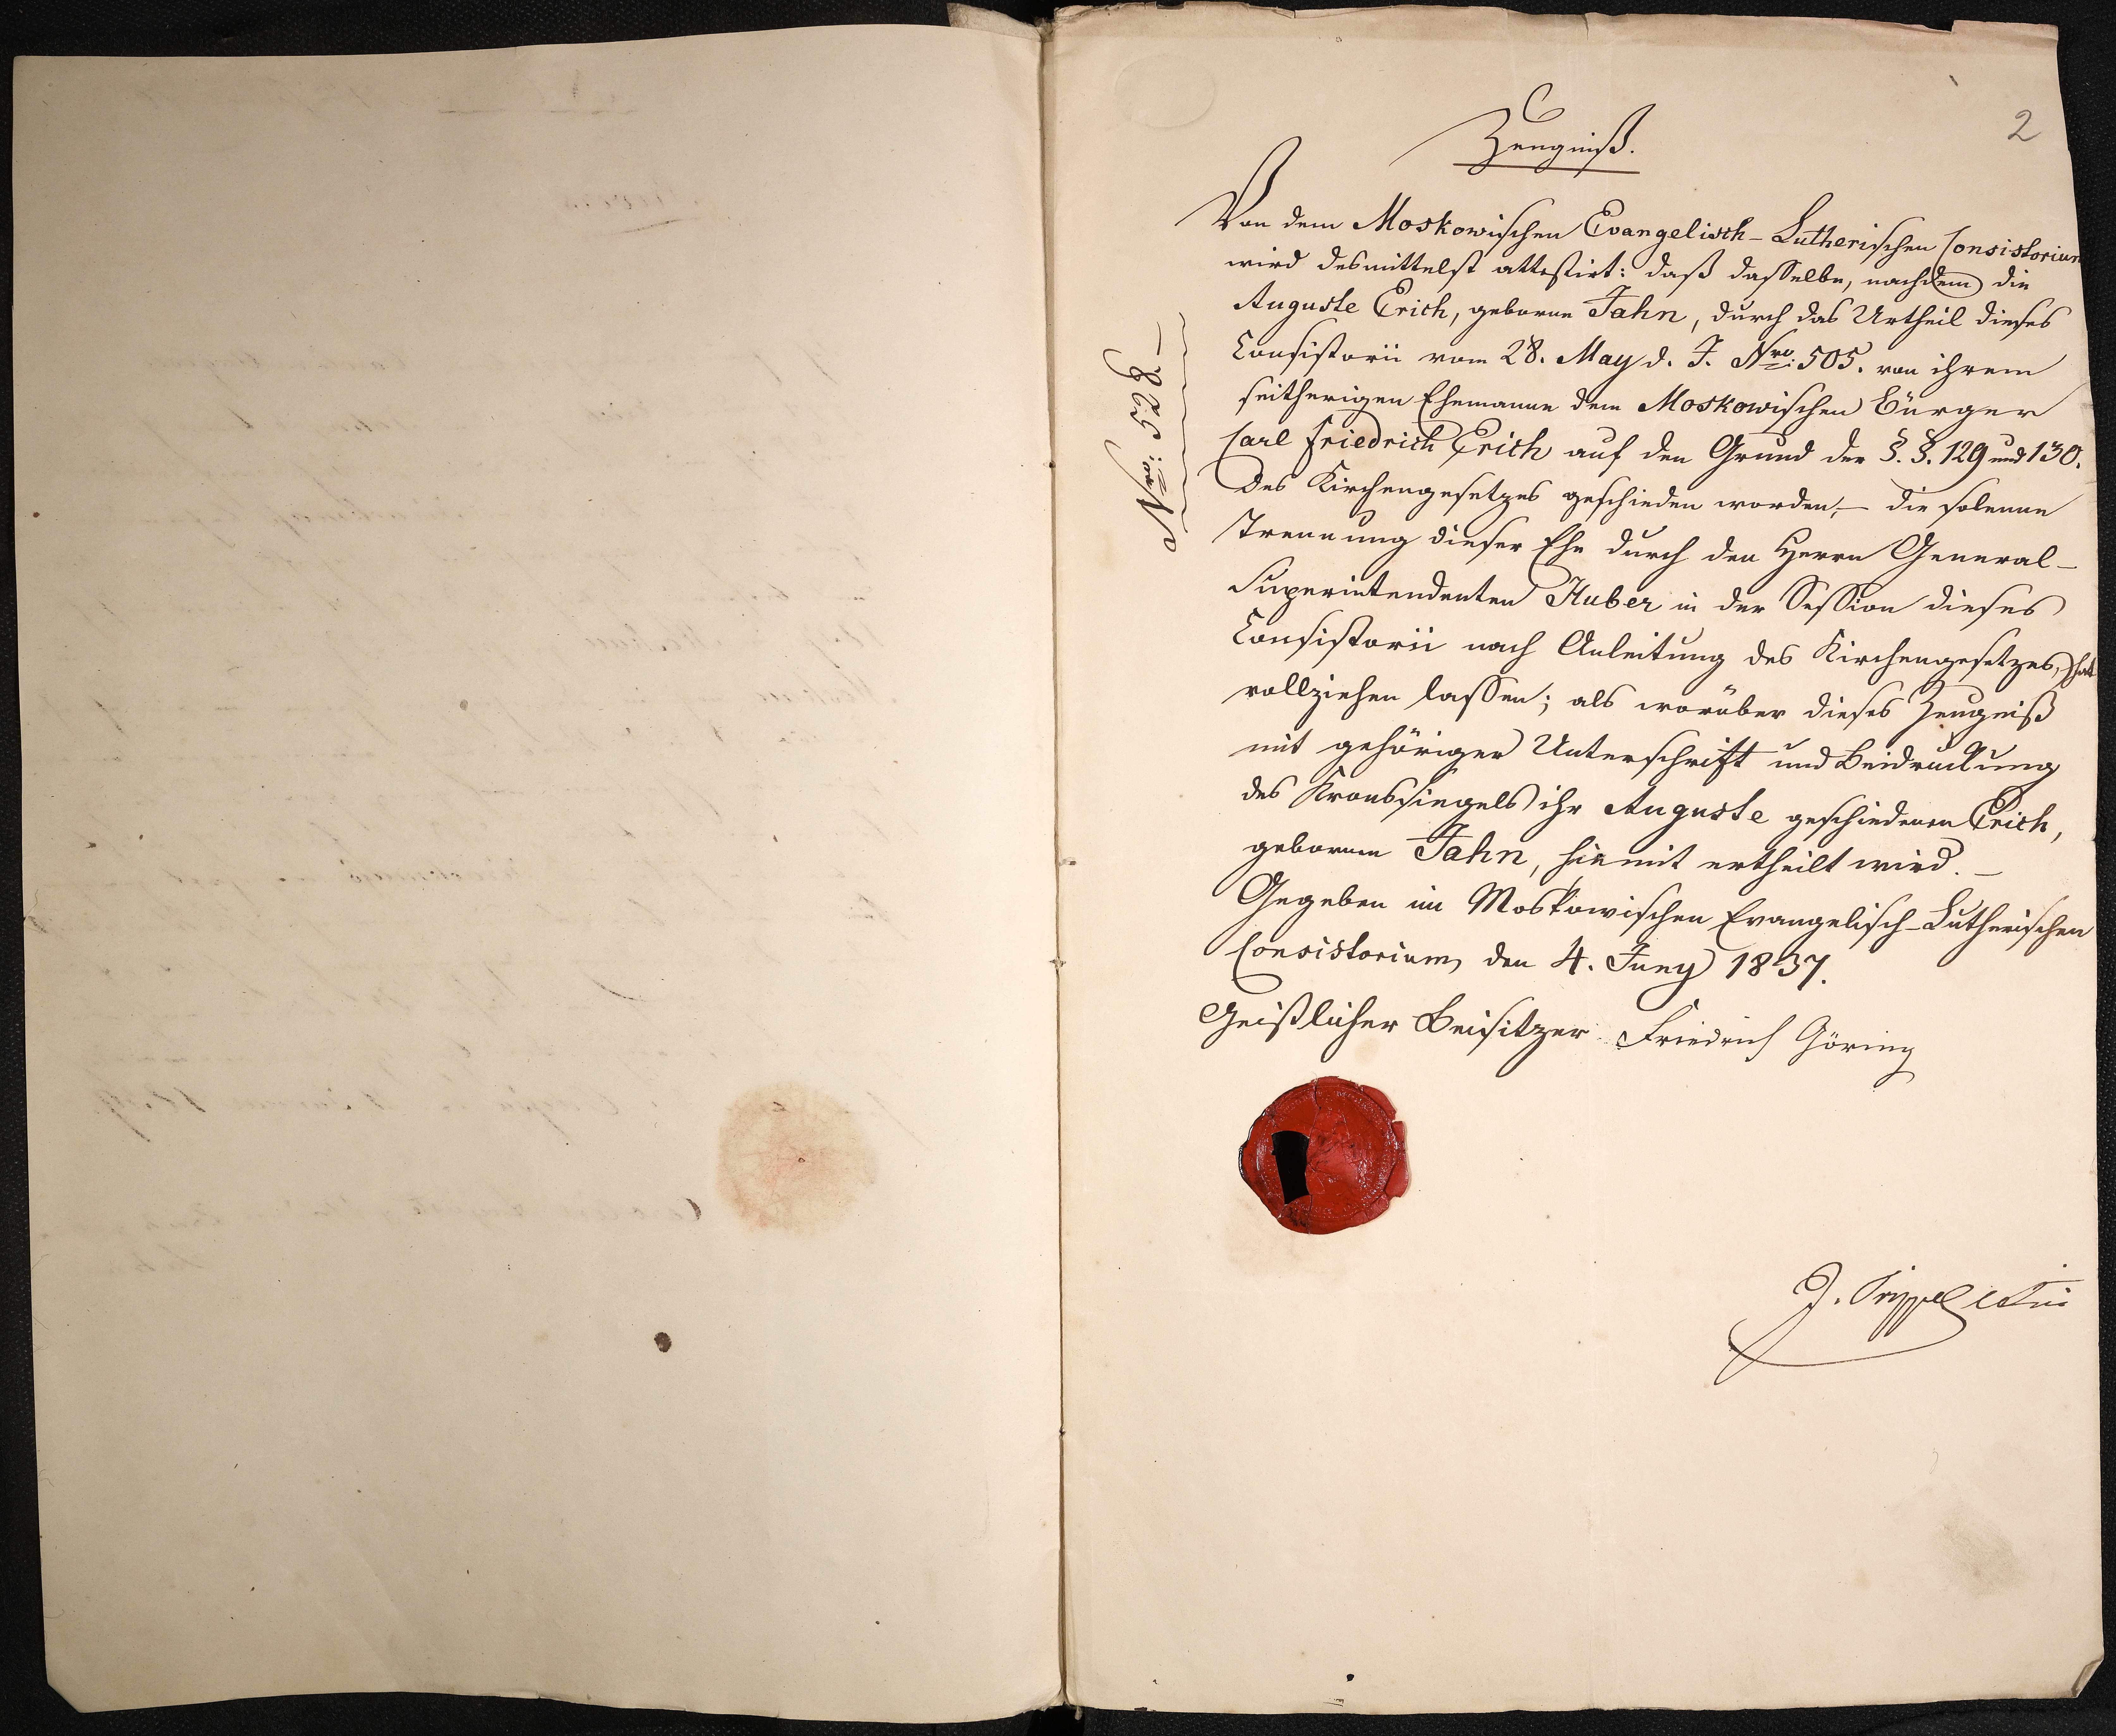 2
Zeugniß.
Von dem Moskowischen Evangelisch-Lutherischen Consistorium
wird desmittelst attestirt: daß dasselbe, nachdem die
Auguste Erich, geborne Jahn, durch das Urtheil dieses
Consistorii vom 28. May d. J. Nro: 505. von ihrem
seitherigen Ehemanne dem Moskowischen Bürger
Carl Friedrich Erich auf den Grund der §.§. 129 und 130.
des Kirchengesetzes geschieden worden, – die solenne
Trennung dieser Ehe durch den Herrn General-
Superintendenten Huber in der Session dieses
Consistorii nach Anleitung des Kirchengesetzes, hat
vollziehen lassen; als worüber dieses Zeugniß
mit gehöriger Unterschrift und Beidrückung
des Kronssiegels ihr Auguste geschiedenen Erich,
geborne Jahn, hiemit ertheilt wird. –
Gegeben im Moskowischen Evangelisch-Lutherischen
Consistorium, den 4. Juny 1837.
Geistlicher Beisitzer Friedrich Göring
Nro: 528. –